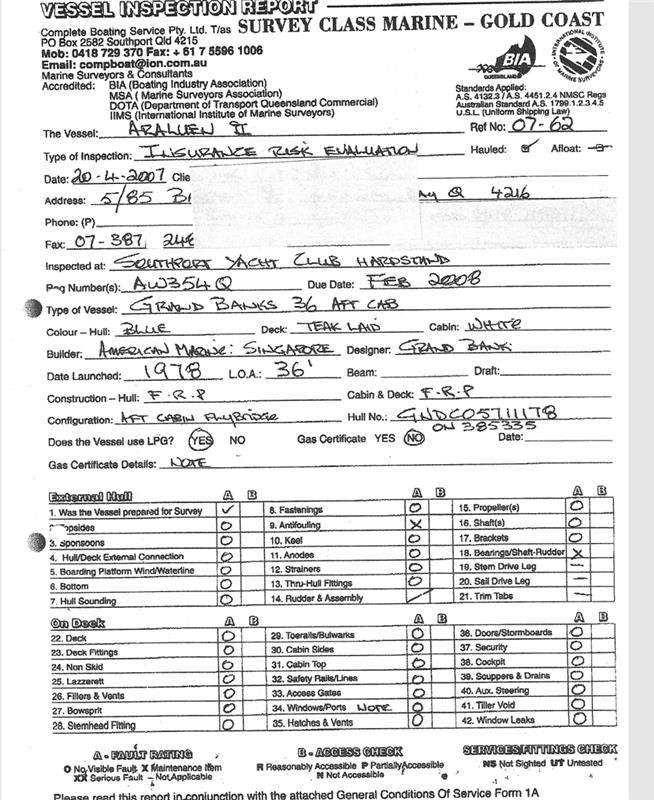 VESSEL INSPECTION REPORT
SURVEY CLASS MARINE – GOLD COAST
Complete Boating Service Pty. Ltd. T/as
PO Box 2582 Southport Qld 4215
Mob: 0418 729 370 Fax: + 61 7 5596 1006
Email: compboat@ion.com.au
Marine Surveyors & Consultants
Accredited: BIA (Boating Industry Association)
MSA ( Marine Surveyors Association)
DOTA (Department of Transport Queensland Commercial)
IIMS (International Institute of Marine Surveyors)
BIA
QUEENSLAND
INTERNATIONAL INSTITUTE OF MARINE SURVEYORS
Standards Applied:
A.S. 4132.3 / A.S. 4451.2.4 NMSC Regs
Australian Standard A.S. 1799.1.2.3.4.5
U.S.L. (Uniform Shipping Law)
The Vessel: ARALUEN II Ref No: 07-62
Type of Inspection: INSURANCE RISK EVALUATION Hauled: ✓ Afloat: –
Date: 20-4-2007 Clie
Address: 5/85 Q 4216
Phone: (P)
Fax: 07-387,
Inspected at: SOUTHPORT YACHT CLUB HARDSTAND
Number(s): AW354Q Due Date: FEB 2008
Type of Vessel: GRAND BANKS 36 AFT CAB
Colour – Hull: BLUE Deck: TEAK LAID Cabin: WHITE
Builder: AMERICAN MARINE: SINGAPORE Designer: GRAND BANK
Date Launched: 1978 L.O.A.: 36' Beam: Draft:
Construction – Hull: F.R.P Cabin & Deck: F.R.P
Configuration: AFT CABIN FLYBRIDGE Hull No.: GNDC05711178
ON 385335
Does the Vessel use LPG? YES NO Gas Certificate YES NO Date:
Gas Certificate Details: NOTE
External Hull A B A B A B
1. Was the Vessel prepared for Survey ✓ 8. Fastenings O 15. Propeller(s) O
opsides O 9. Antifouling X 16. Shaft(s) O
3. Sponsoons O 10. Keel O 17. Brackets O
4. Hull/Deck External Connection O 11. Anodes O 18. Bearings/Shaft-Rudder X
5. Boarding Platform Wind/Waterline O 12. Strainers O 19. Stern Drive Leg –
6. Bottom O 13. Thru-Hull Fittings O 20. Sail Drive Leg –
7. Hull Sounding O 14. Rudder & Assembly / 21. Trim Tabs –
On Deck A B A B A B
22. Deck O 29. Toerails/Bulwarks O 36. Doors/Stormboards O
23. Deck Fittings O 30. Cabin Sides O 37. Security O
24. Non Skid O 31. Cabin Top O 38. Cockpit O
25. Lazzerett O 32. Safety Rails/Lines O 39. Scuppers & Drains O
26. Fillers & Vents O 33. Access Gates O 40. Aux. Steering O
27. Bowsprit O 34. Windows/Ports NOTE O 41. Tiller Void O
28. Stemhead Fitting O 35. Hatches & Vents O 42. Window Leaks O
A - FAULT RATING B - ACCESS CHECK SERVICES/FITTINGS CHECK
O No Visible Fault X Maintenance Item R Reasonably Accessible P Partially Accessible NS Not Sighted UT Untested
XX Serious Fault – Not Applicable N Not Accessible
Please read this report in conjunction with the attached General Conditions Of Service Form 1A